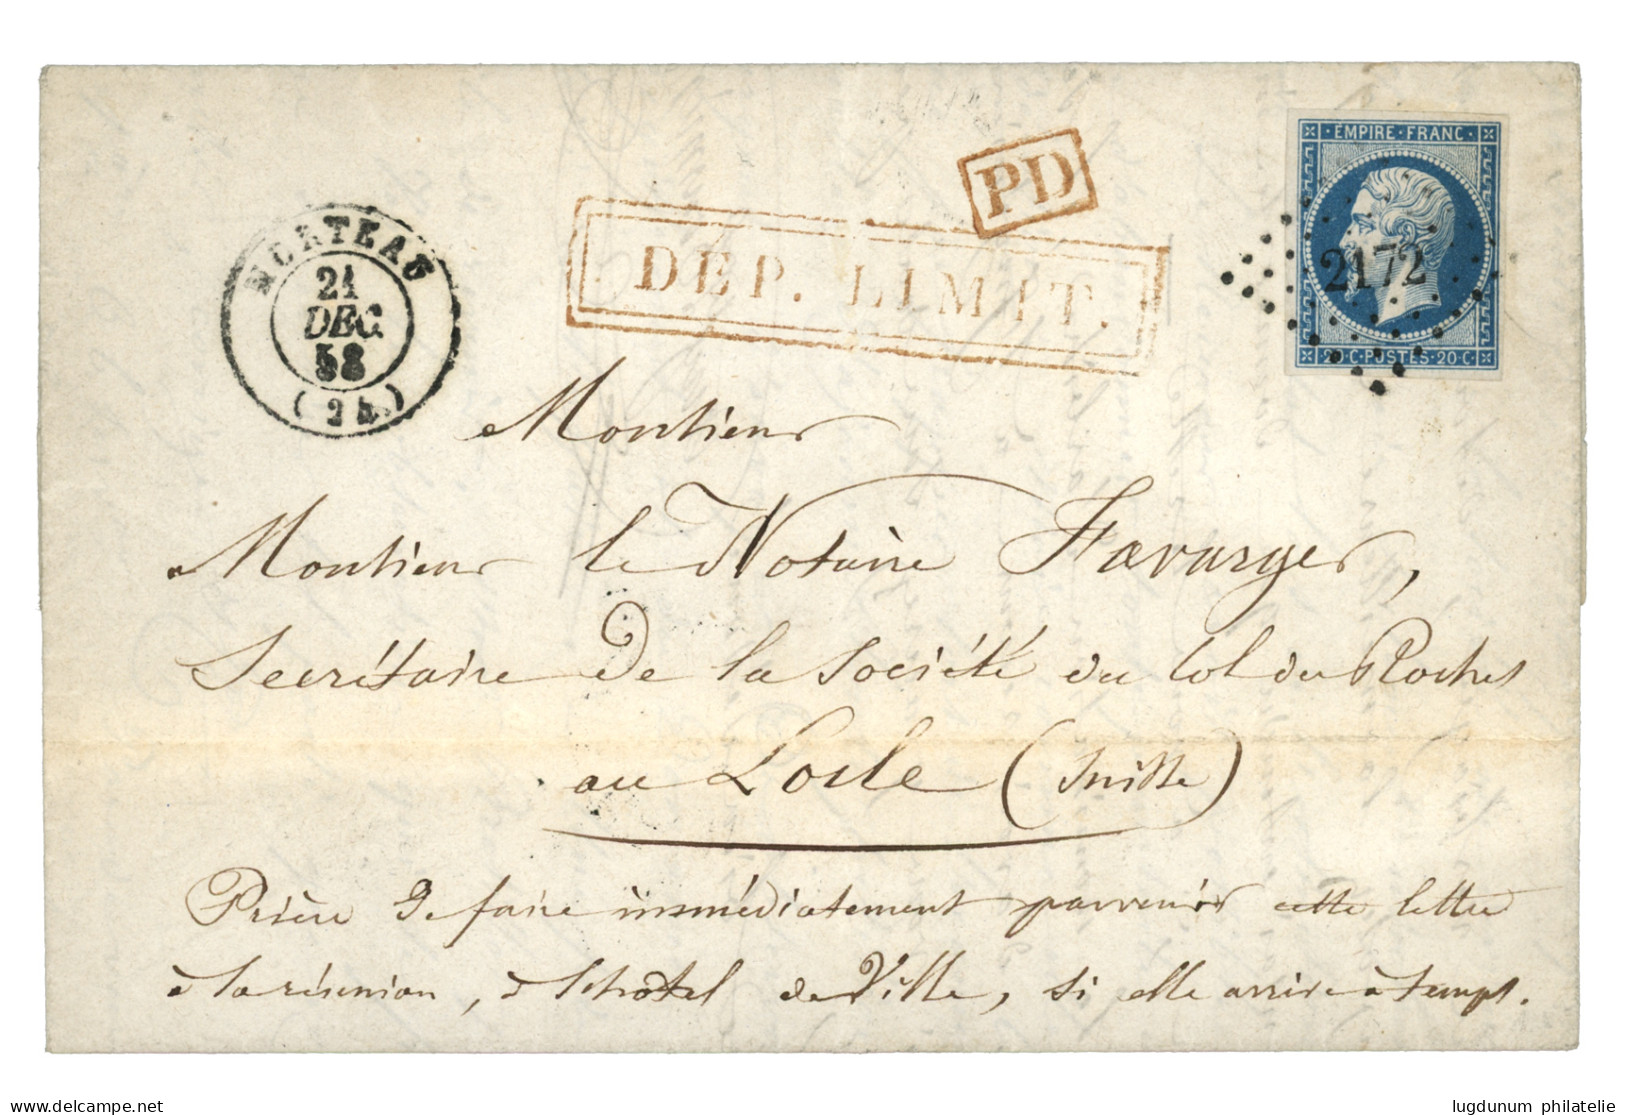 MORTEAU
21
DEC.
58
(24)
PD
DEP. LIMIT.
EMPIRE · FRANC ·
2172
20 C · POSTES · 20 C ·
Monsieur
Monsieur le Notaire Favarger,
Secrétaire de la Société du Col du Roches
au Locle (Suisse)
Prière de faire immédiatement parvenir cette lettre
à la réunion, à l'hôtel de Ville, si elle arrive à temps.
delcampe.net
lugdunum philatelie